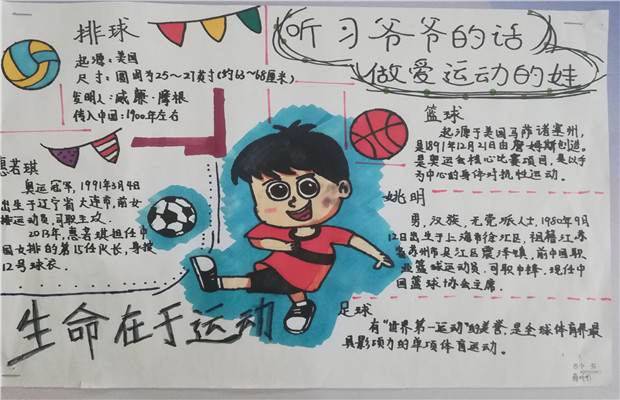 听习爷爷的话
做爱运动的娃
排球
起源：美国
尺寸：圆周为25～27英寸(约63～68厘米)
发明人：威廉·摩根
传入中国：1900年左右
惠若琪
奥运冠军，1991年3月4日
出生于辽宁省大连市，前女
排运动员，司职主攻。
2013年，惠若琪担任中
国女排的第15任队长，身披
12号球衣。
篮球
起源于美国马萨诸塞州，
是1891年12月21日由詹姆斯创造。
是奥运会核心比赛项目，是以手
为中心的身体对抗性运动。
姚明
男，汉族，无党派人士，1980年9月
12日出生于上海市徐汇区，祖籍江苏
省苏州市吴江区震泽镇，前中国职
业篮球运动员，司职中锋，现任中
国篮球协会主席。
足球
有“世界第一运动”的美誉，是全球体育界最
具影响力的单项体育运动。
生命在于运动